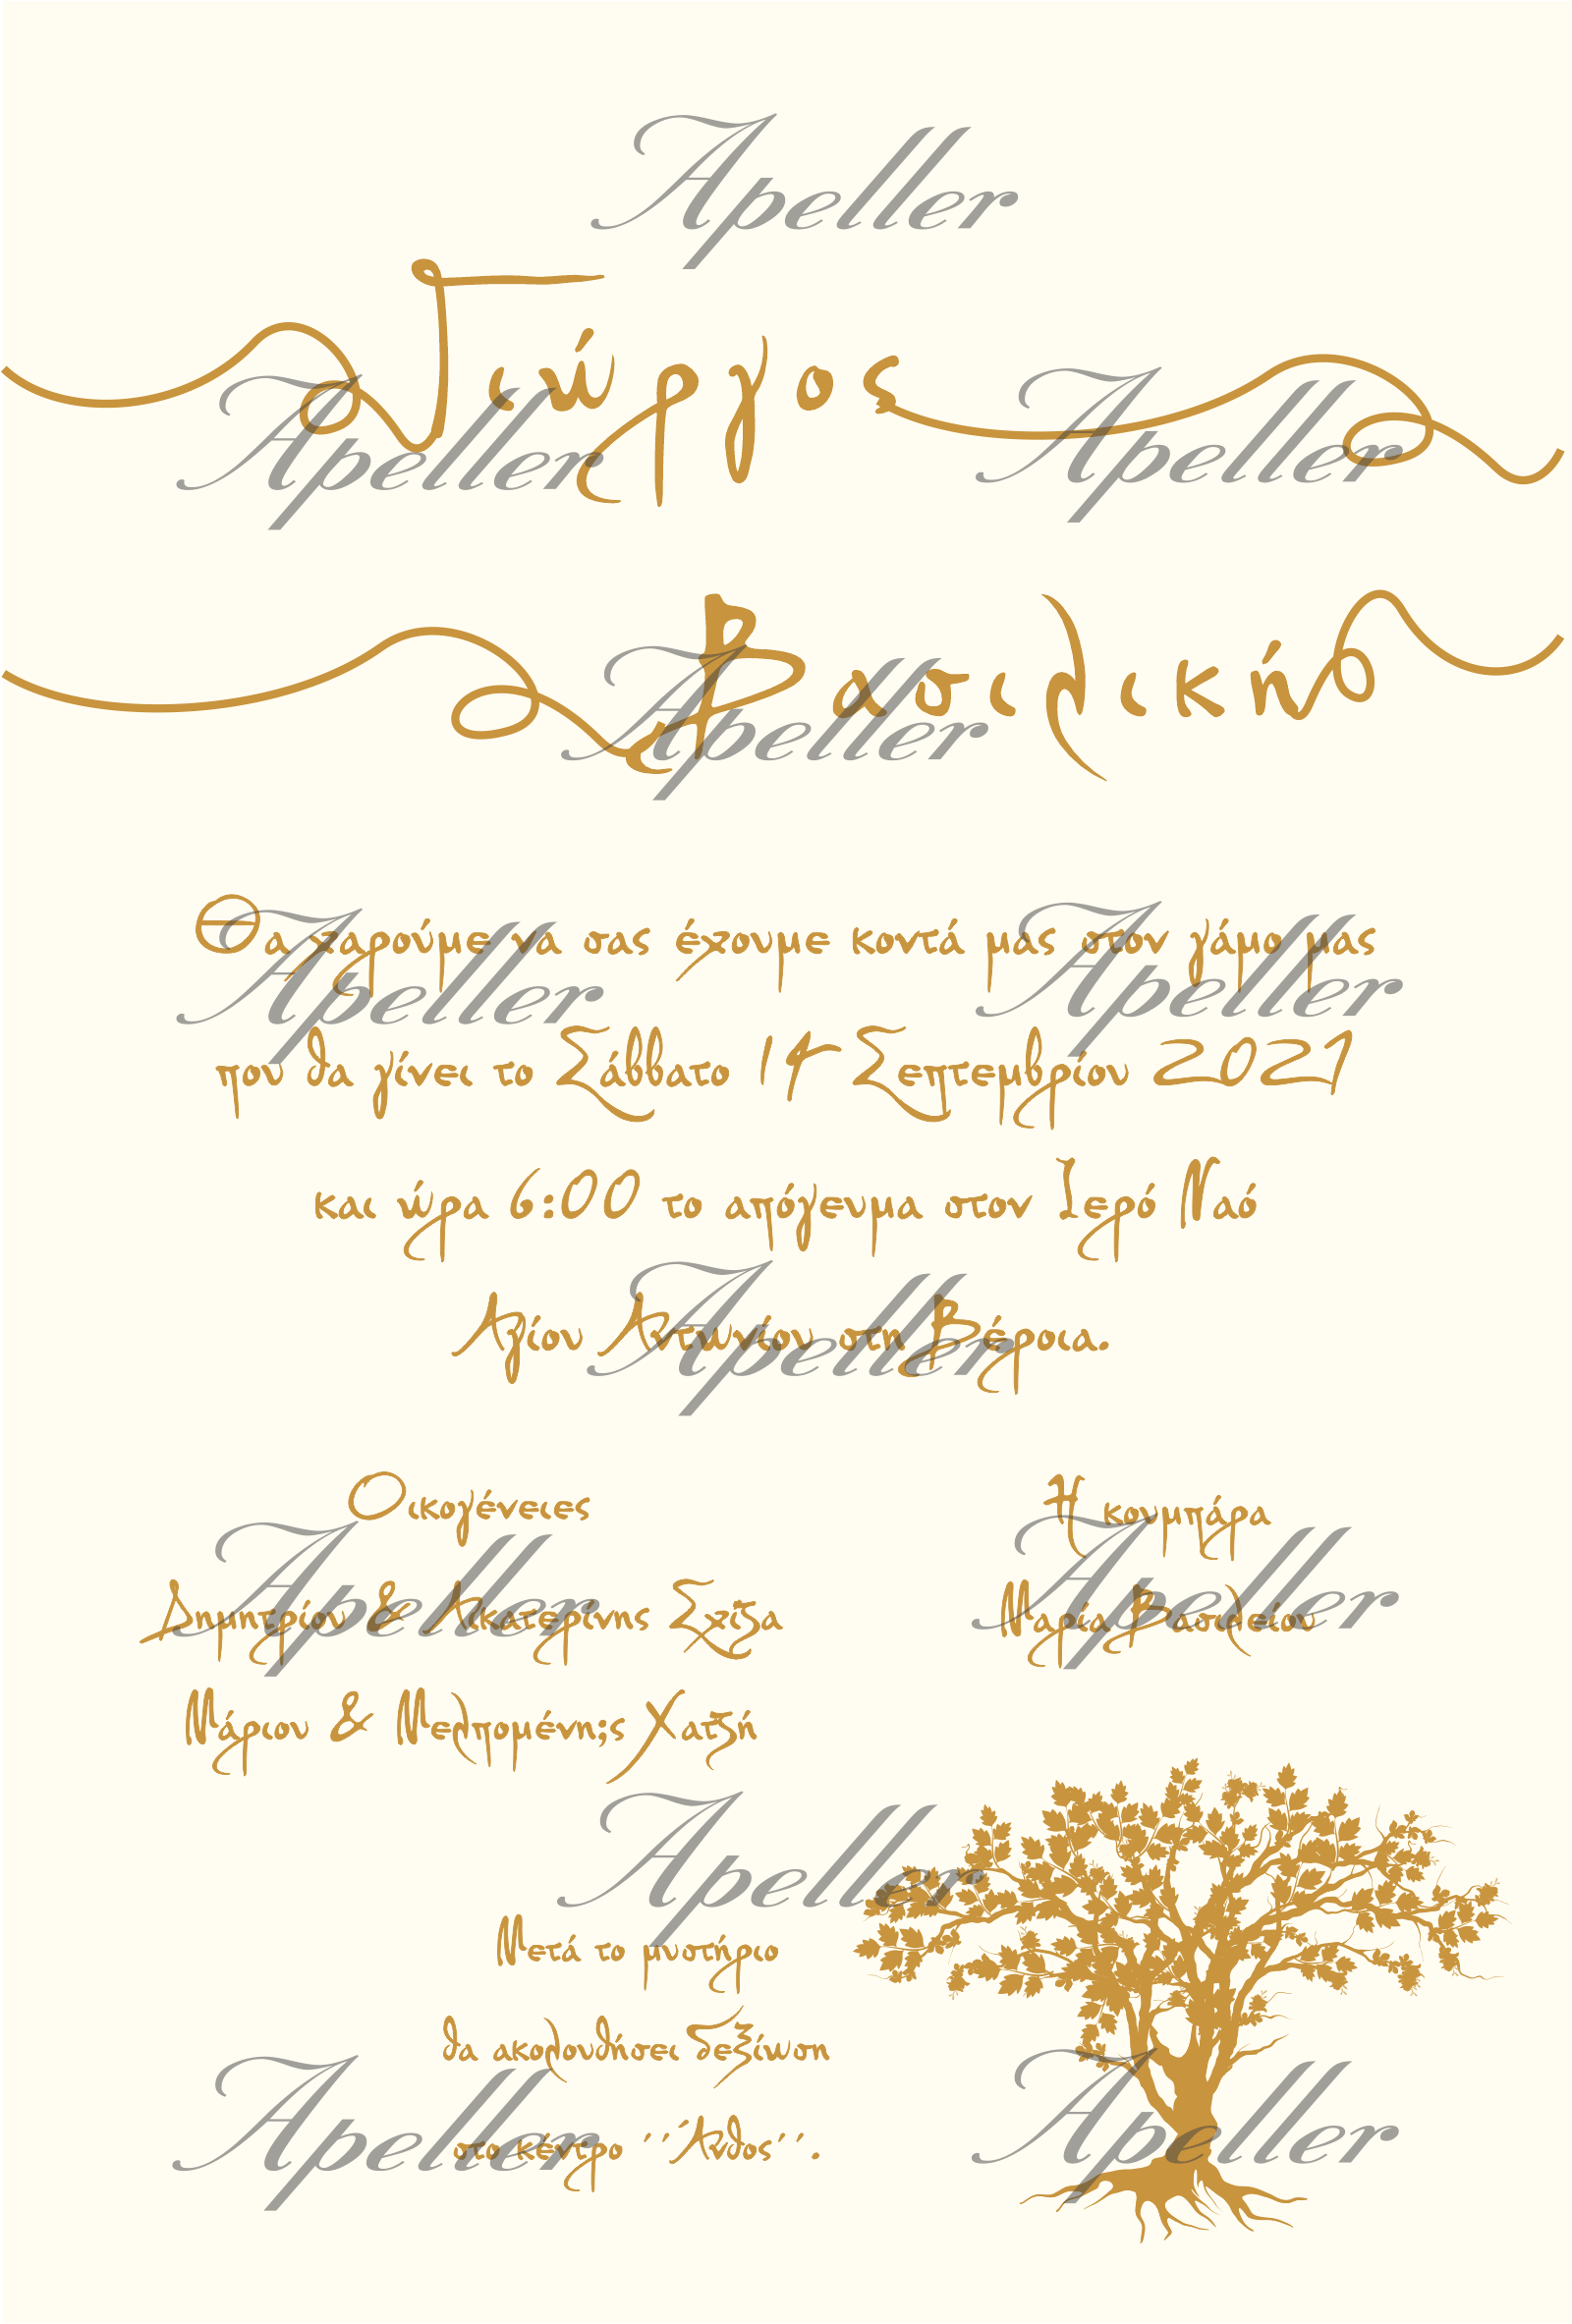 Apeller
Γιώργος
Apeller
Apeller
Βασιλική
Apeller
Θα χαρούμε να σας έχουμε κοντά μας στον γάμο μας
Apeller
Apeller
που θα γίνει το Σάββατο 14 Σεπτεμβρίου 2021
και ώρα 6:00 το απόγευμα στον Ιερό Ναό
Αγίου Αντωνίου στη Βέροια.
Apeller
Οικογένειες
Η κουμπάρα
Apeller
Apeller
Δημητρίου & Αικατερίνης Σχίζα
Μαρία Βασιλείου
Μάριου & Μελπομένη;ς Χατζή
Apeller
Μετά το μυστήριο
θα ακολουθήσει δεξίωση
Apeller
Apeller
στο κέντρο ΄΄Άνθος΄΄.